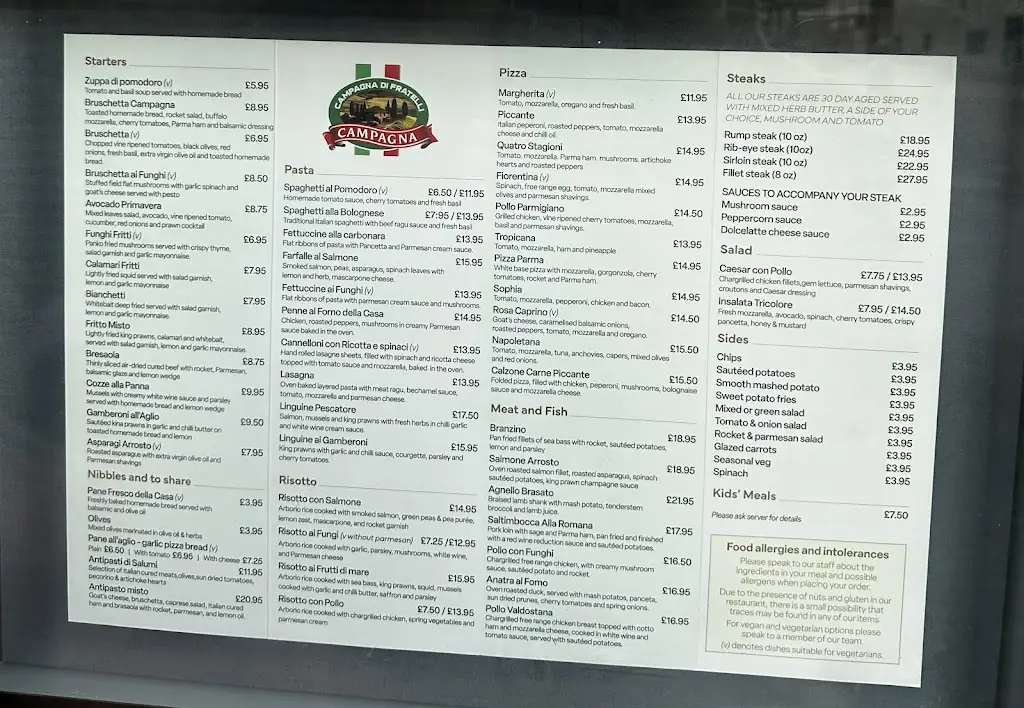 Starters
Zuppa di pomodoro (v) £5.95
Tomato and basil soup served with homemade bread
Bruschetta Campagna £8.95
Toasted homemade bread, rocket salad, buffalo
mozzarella, cherry tomatoes, Parma ham and balsamic dressing
Bruschetta (v) £6.95
Chopped vine ripened tomatoes, black olives, red
onions, fresh basil, extra virgin olive oil and toasted homemade
bread.
Bruschetta ai Funghi (v) £8.50
Stuffed field flat mushrooms with garlic spinach and
goat's cheese served with pesto
Avocado Primavera £8.75
Mixed leaves salad, avocado, vine ripened tomato,
cucumber, red onions and prawn cocktail
Funghi Fritti (v) £6.95
Panko fried mushrooms served with crispy thyme,
salad garnish and garlic mayonnaise.
Calamari Fritti £7.95
Lightly fried squid served with salad garnish,
lemon and garlic mayonnaise
Bianchetti £7.95
Whitebait deep fried served with salad garnish,
lemon and garlic mayonnaise.
Fritto Misto £8.95
Lightly fried king prawns, calamari and whitebait,
served with salad garnish, lemon and garlic mayonnaise.
Bresaola £8.75
Thinly sliced air-dried cured beef with rocket, Parmesan,
balsamic glaze and lemon wedge
Cozze alla Panna £9.95
Mussels with creamy white wine sauce and parsley
served with homemade bread and lemon wedge
Gamberoni all'Aglio £9.50
Sautéed king prawns in garlic and chilli butter on
toasted homemade bread and lemon
Asparagi Arrosto (v) £7.95
Roasted asparagus with extra virgin olive oil and
Parmesan shavings
Nibbles and to share
Pane Fresco della Casa (v) £3.95
Freshly baked homemade bread served with
balsamic and olive oil
Olives £3.95
Mixed olives marinated in olive oil & herbs
Pane all'aglio - garlic pizza bread (v)
Plain £6.50 | With tomato £6.95 | With cheese £7.25
Antipasti di Salumi £11.95
Selection of Italian cured meats, olives, sun dried tomatoes,
pecorino & artichoke hearts
Antipasto misto £20.95
Goat's cheese, bruschetta, caprese salad, Italian cured
ham and brasaola with rocket, parmesan, and lemon oil.
CAMPAGNA DI FRATELLI
CAMPAGNA
Pasta
Spaghetti al Pomodoro (v) £6.50 / £11.95
Homemade tomato sauce, cherry tomatoes and fresh basil
Spaghetti alla Bolognese £7.95 / £13.95
Traditional Italian spaghetti with beef ragu sauce and fresh basil
Fettuccine alla carbonara £13.95
Flat ribbons of pasta with Pancetta and Parmesan cream sauce.
Farfalle al Salmone £15.95
Smoked salmon, peas, asparagus, spinach leaves with
lemon and herb, mascarpone cheese.
Fettuccine ai Funghi (v) £13.95
Flat ribbons of pasta with parmesan cream sauce and mushrooms.
Penne al Forno della Casa £14.95
Chicken, roasted peppers, mushrooms in creamy Parmesan
sauce baked in the oven.
Cannelloni con Ricotta e spinaci (v) £13.95
Hand rolled lasagne sheets, filled with spinach and ricotta cheese
topped with tomato sauce and mozzarella, baked in the oven.
Lasagna £13.95
Oven baked layered pasta with meat ragu, bechamel sauce,
tomato, mozzarella and parmesan cheese.
Linguine Pescatore £17.50
Salmon, mussels and king prawns with fresh herbs in chilli garlic
and white wine cream sauce.
Linguine ai Gamberoni £15.95
King prawns with garlic and chilli sauce, courgette, parsley and
cherry tomatoes
Risotto
Risotto con Salmone £14.95
Arborio rice cooked with smoked salmon, green peas & pea purée,
lemon zest, mascarpone, and rocket garnish
Risotto ai Fungi (v without parmesan) £7.25 /£12.95
Arborio rice cooked with garlic, parsley, mushrooms, white wine,
and Parmesan cheese
Risotto ai Frutti di mare £15.95
Arborio rice cooked with sea bass, king prawns, squid, mussels
cooked with garlic and chilli butter, saffron and parsley
Risotto con Pollo £7.50 / £13.95
Arborio rice cooked with chargrilled chicken, spring vegetables and
parmesan cream
Pizza
Margherita (v) £11.95
Tomato, mozzarella, oregano and fresh basil.
Piccante £13.95
Italian peperoni, roasted peppers, tomato, mozzarella
cheese and chilli oil.
Quatro Stagioni £14.95
Tomato, mozzarella. Parma ham. mushrooms. artichoke
hearts and roasted peppers
Fiorentina (v) £14.95
Spinach, free range egg, tomato, mozzarella mixed
olives and parmesan shavings.
Pollo Parmigiano £14.50
Grilled chicken, vine ripened cherry tomatoes, mozzarella,
basil and parmesan shavings.
Tropicana £13.95
Tomato, mozzarella, ham and pineapple
Pizza Parma £14.95
White base pizza with mozzarella, gorgonzola, cherry
tomatoes, rocket and Parma ham.
Sophia £14.95
Tomato, mozzarella, pepperoni, chicken and bacon.
Rosa Caprino (v) £14.50
Goat's cheese, caramelised balsamic onions,
roasted peppers, tomato, mozzarella and oregano.
Napoletana £15.50
Tomato, mozzarella, tuna, anchovies, capers, mixed olives
and red onions.
Calzone Carne Piccante £15.50
Folded pizza, filled with chicken, peperoni, mushrooms, bolognaise
sauce and mozzarella cheese.
Meat and Fish
Branzino £18.95
Pan fried fillets of sea bass with rocket, sautéed potatoes,
lemon and parsley
Salmone Arrosto £18.95
Oven roasted salmon fillet, roasted asparagus, spinach
sautéed potatoes, king prawn champagne sauce
Agnello Brasato £21.95
Braised lamb shank with mash potato, tenderstem
broccoli and lamb juice.
Saltimbocca Alla Romana £17.95
Pork loin with sage and Parma ham, pan fried and finished
with a red wine reduction sauce and sautéed potatoes.
Pollo con Funghi £16.50
Chargrilled free range chicken, with creamy mushroom
sauce, sautéed potato and rocket
Anatra al Forno £16.95
Oven roasted duck, served with mash potatos, panceta,
sun dried prunes, cherry tomatoes and spring onions.
Pollo Valdostana £16.95
Chargrilled free range chicken breast topped with cotto
ham and mozzarella cheese, cooked in white wine and
tomato sauce, served with sautéed potatoes.
Steaks
ALL OUR STEAKS ARE 30 DAY AGED SERVED
WITH MIXED HERB BUTTER, A SIDE OF YOUR
CHOICE, MUSHROOM AND TOMATO
Rump steak (10 oz) £18.95
Rib-eye steak (10oz) £24.95
Sirloin steak (10 oz) £22.95
Fillet steak (8 oz) £27.95
SAUCES TO ACCOMPANY YOUR STEAK
Mushroom sauce £2.95
Peppercorn sauce £2.95
Dolcelatte cheese sauce £2.95
Salad
Caesar con Pollo £7.75 / £13.95
Chargrilled chicken fillets,gem lettuce, parmesan shavings,
croutons and Caesar dressing
Insalata Tricolore £7.95 / £14.50
Fresh mozzarella, avocado, spinach, cherry tomatoes, crispy
pancetta, honey & mustard
Sides
Chips £3.95
Sautéed potatoes £3.95
Smooth mashed potato £3.95
Sweet potato fries £3.95
Mixed or green salad £3.95
Tomato & onion salad £3.95
Rocket & parmesan salad £3.95
Glazed carrots £3.95
Seasonal veg £3.95
Spinach £3.95
Kids' Meals
Please ask server for details £7.50
Food allergies and intolerances
Please speak to our staff about the
ingredients in your meal and possible
allergens when placing your order.
Due to the presence of nuts and gluten in our
restaurant, there is a small possibility that
traces may be found in any of our items
For vegan and vegetarian options please
speak to a member of our team.
(v) denotes dishes suitable for vegetarians.